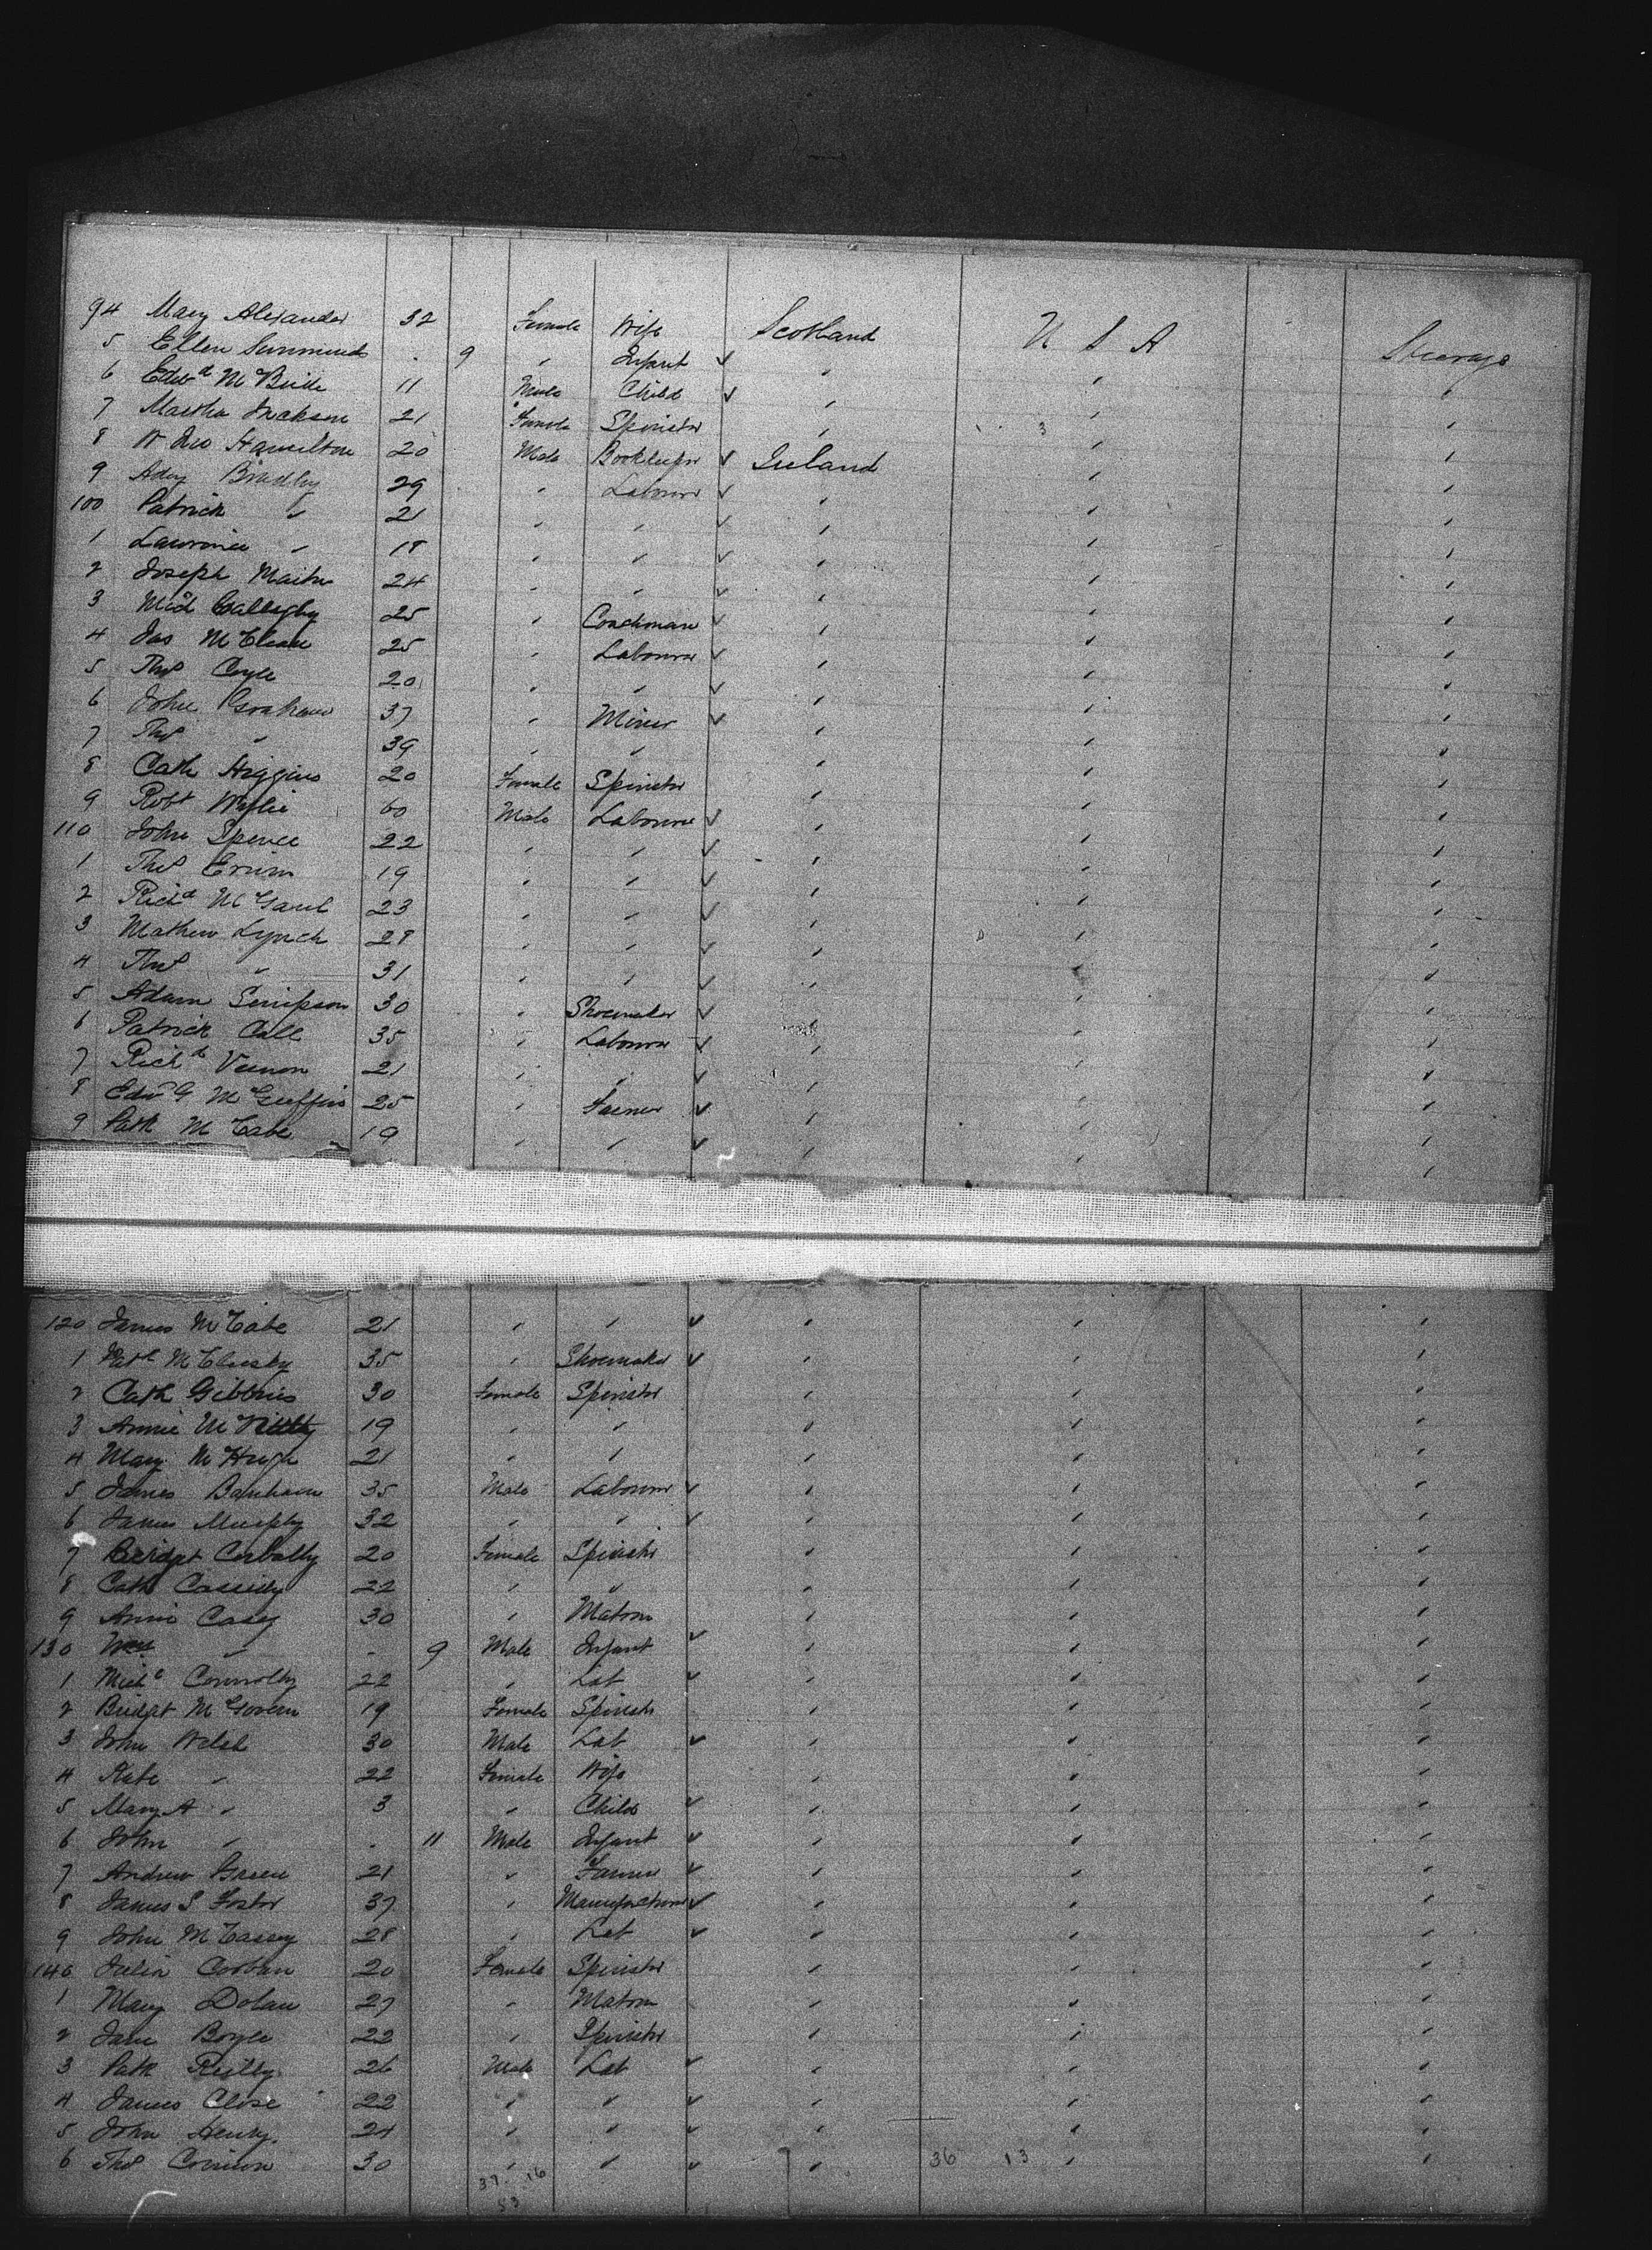 94 Mary Alexander 32 Female Wife Scotland U S A Steerage
5 Ellen 9 " Infant ✓ " " "
6 Edwd McBride 11 Male Child ✓ " " "
7 Martha Jackson 21 Female Spinster " " "
8 Hamilton 20 Male Bookkeeper ✓ Ireland " "
9 Bradley 29 " Labourer ✓ " " "
100 Patrick " 21 " " ✓ " " "
1 Lawrence " 18 " " ✓ " " "
2 Joseph 24 " " ✓ " " "
3 25 " Coachman ✓ " " "
4 Jas 25 " Labourer ✓ " " "
5 Thos Coyle 20 " " ✓ " " "
6 John Graham 37 " Miner ✓ " " "
7 Thos " 39 " " " " "
8 Cath Higgins 20 Female Spinster " " "
9 Robt Wylie 60 Male Labourer ✓ " " "
110 John Spence 22 " " ✓ " " "
1 Thos 19 " " ✓ " " "
2 Richd 23 " " ✓ " " "
3 Mathew Lynch 28 " " ✓ " " "
4 Thos " 31 " " ✓ " " "
5 Adam Simpson 30 " Shoemaker ✓ " " "
6 Patrick Call 35 " Labourer ✓ " " "
7 Richd Vernon 21 " " ✓ " " "
8 Edwd G McGuffin 25 " Farmer ✓ " " "
9 Patk McCabe 19 " " ✓ " " "
120 James McCabe 21 " " ✓ " " "
1 Patk McClusky 35 " Shoemaker ✓ " " "
2 Cath Gibbons 30 Female Spinster " " "
3 Annie 19 " " " " "
4 Mary McHugh 21 " " " " "
5 James 35 Male Labourer ✓ " " "
6 James Murphy 32 " " ✓ " " "
7 Bridget Corbally 20 Female Spinster " " "
8 Cath Cassidy 22 " " " " "
9 Annie Casey 30 " Matron " " "
130 Wm " 9 Male Infant ✓ " " "
1 Michl Connolly 22 " Lab ✓ " " "
2 Bridget McGovern 19 Female Spinster " " "
3 John Welsh 30 Male Lab ✓ " " "
4 Kate " 22 Female Wife " " "
5 Mary A " 3 " Child ✓ " " "
6 John " 11 Male Infant ✓ " " "
7 Andrew Green 21 " Farmer ✓ " " "
8 James S Foster 37 " Manufacturer ✓ " " "
9 John McCassey 28 " Lab ✓ " " "
140 Julia 20 Female Spinster " " "
1 Mary Dolan 27 " Matron " " "
2 Jane Boyle 22 " Spinster " " "
3 Patk Reilly 26 Male Lab ✓ " " "
4 James Close 22 " " ✓ " " "
5 John Henry 24 " " ✓ " " "
6 Thos 30 " " ✓ " 36 13 " "
37 16
53